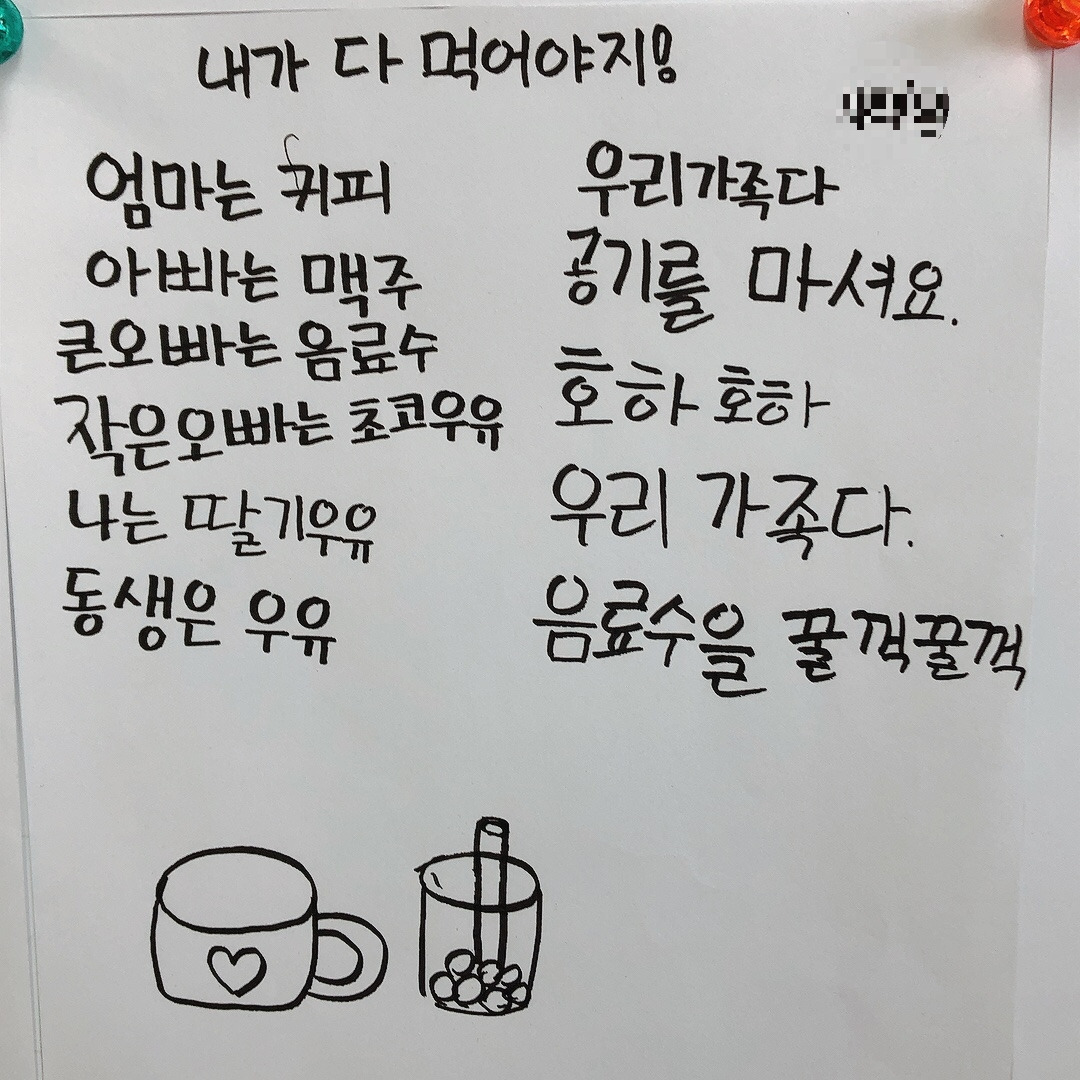 내가 다 먹어야지!
엄마는 커피
아빠는 맥주
큰오빠는 음료수
작은오빠는 초코우유
나는 딸기우유
동생은 우유
우리가족다
공기를 마셔요.
호하 호하
우리 가족다.
음료수을 꿀꺽꿀꺽